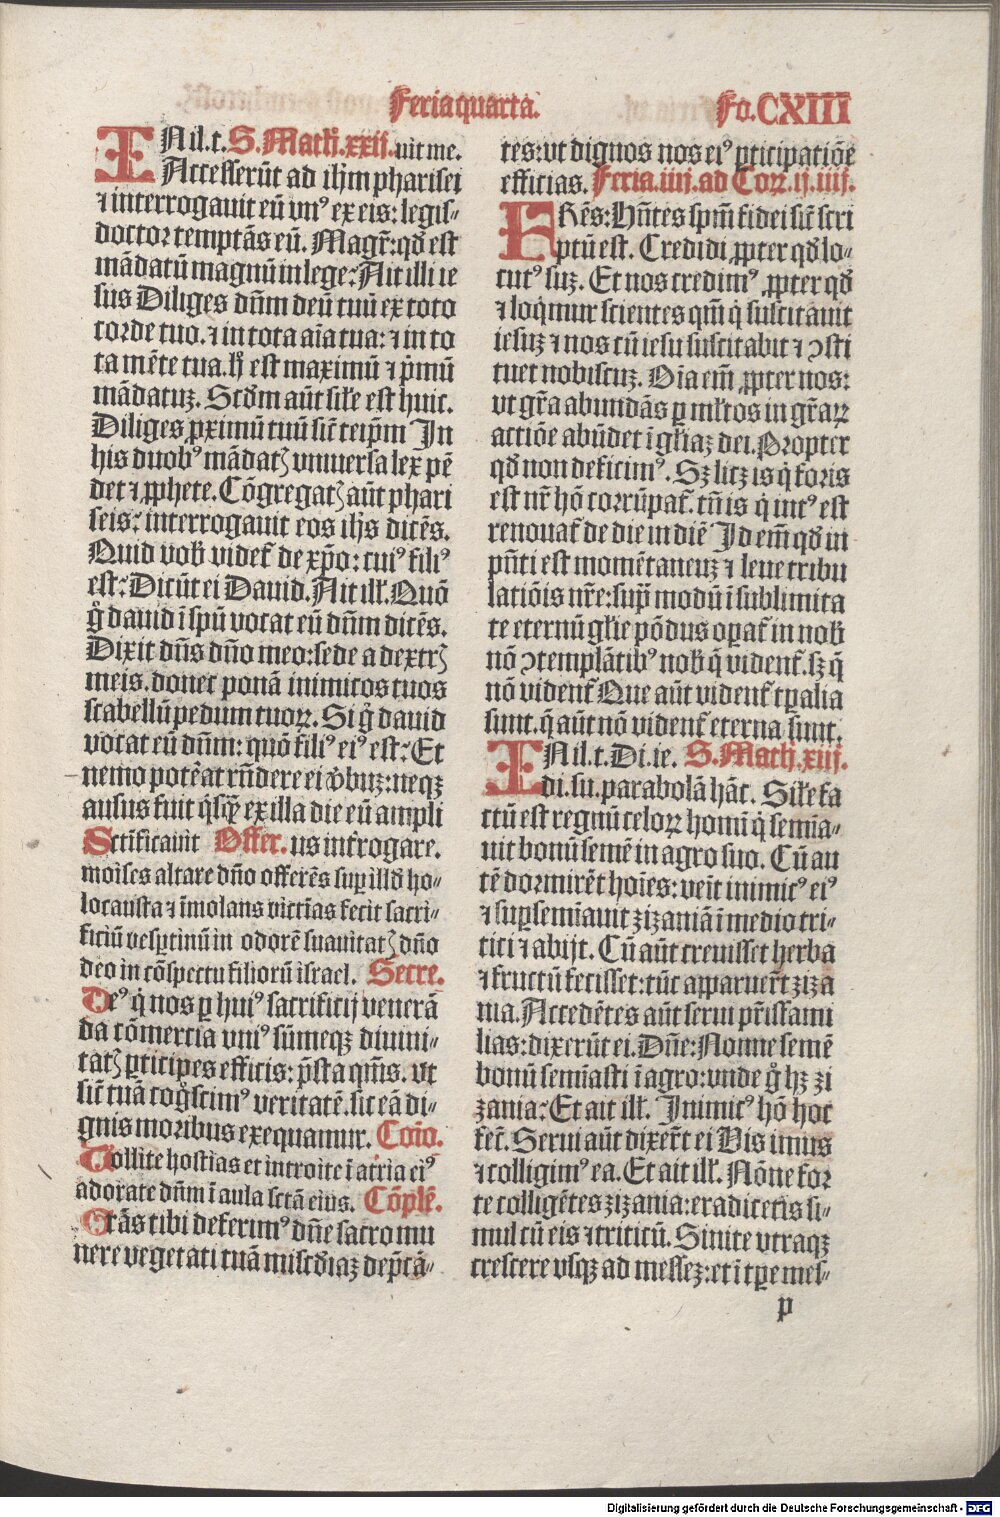 Feria quarta.
Fo. CXIII
IN il. t. S. Math. xxij. uit me.
Accesserūt ad ihm pharisei
⁊ interrogauit eū vn⁹ ex eis: legis⸗
doctor temptās eū. Magr̄: qd̄ est
mādatū magnū in lege? Ait illi ie
sus Diliges dn̄m deū tuū ex toto
corde tuo. ⁊ in tota aīa tua: ⁊ in to
ta mēte tua. h̄ est maximū ⁊ p̄mū
mādatuꝫ. Scd̄m aūt sil̄e est huic.
Diliges ꝓximū tuū sic̄ teip̄m In
his duob⁹ mādatꝭ vniuersa lex pē
det ⁊ ꝓphete. Cōgregatꝭ aūt phari
seis: interrogauit eos ih̄s dicēs.
Quid vob̄ videt᷑ de xp̄o: cui⁹ fili⁹
est? Dicūt ei Dauid. Ait ill̄. Quō
g̊ dauid ī spū vocat eū dn̄m dicēs.
Dixit dn̄s dn̄o meo: sede a dextrꝭ
meis. donec ponā inimicos tuos
scabellū pedum tuoꝝ. Si g̊ dauid
vocat eū dn̄m: quō fili⁹ ei⁹ est? Et
nemo poterat rn̄dere ei v̄buꝫ: neqꝫ
ausus fuit q̄sq̄ ex illa die eū ampli
Sctīficauit Offer. us int̄rogare.
moises altare dn̄o offerēs suꝑ illd̄ ho⸗
locausta ⁊ īmolans victīas fecit sacri⸗
ficiū vesꝑtinū in odorē suauitatꝭ dn̄o
deo in cōspectu filiorū israel. Secre.
De⁹ q̇ nos ꝑ hui⁹ sacrificij venerā
da cōmercia vni⁹ sūmeqꝫ diuini⸗
tatꝭ ꝑticipes efficis: p̄sta qm̄s. vt
sic̄ tuā cog̊scim⁹ veritatē. sic eā di⸗
gnis moribus exequamur. Cōīo.
Tollite hostias et introite ī atria ei⁹
adorate dn̄m ī aula sctā eius. Cōplē.
Grās tibi deferim⁹ dn̄e sacro mu
nere vegetati tuā miscd̄iaꝫ dep̄cā⸗
tes: vt dignos nos ei⁹ ꝑticipatiōe
efficias. Feria. iiij. ad Coꝝ. ij. iiij.
FRēs: Hn̄tes spm̄ fidei sic̄ scri
ptū est. Credidi ꝓpter qd̄ lo⸗
cut⁹ suꝫ. Et nos credim⁹ ꝓpter qd̄
⁊ loq̇mur scientes qm̄ q̇ suscitauit
iesuꝫ ⁊ nos cū iesu suscitabit ⁊ ꝯsti
tuet nobiscuꝫ. Oīa em̄ ꝓpter nos:
vt gr̄a abundās ꝑ ml̄tos in gr̄aꝝ
actiōe abūdet ī gl̄iaꝫ dei. Propter
qd̄ non deficim⁹. Sꝫ licꝫ is q̇ foris
est nr̄ hō corrūpat᷑. tn̄ is q̇ int⁹ est
renouat᷑ de die in diē Id em̄ qd̄ in
pn̄ti est momētaneuꝫ ⁊ leue tribu
latiōis nr̄e: supͣ modū ī sublimita
te eternū gl̄ie pōdus oꝑat᷑ in nob̄
nō ꝯtemplātib⁹ nob̄ q̄ vident᷑. sꝫ q̄
nō vident᷑ Que aūt vident᷑ tꝑalia
sunt. q̄ aūt nō vident᷑ eterna sunt.
IN il. t. Di. ie. S. Math. xiij.
di. su. parabolā hāc. Sil̄e fa
ctū est regnū celoꝝ homī q̇ semia⸗
uit bonū semē in agro suo. Cū au
tē dormirēt hoīes: veit inimic⁹ ei⁹
⁊ suꝑsemīauit zizaniā ī medio tri⸗
tici ⁊ abijt. Cū aūt creuisset herba
⁊ fructū fecisset: tūc apparuer̄t ziza
nia. Accedētes aūt serui pr̄isfami
lias: dixerūt ei. Dn̄e: Nonne semē
bonū semīasti ī agro: vnde g̊ hꝫ zi
zania? Et ait ill̄. Inimic⁹ hō hoc
fec̄. Serui aūt dixer̄t ei Vis imus
⁊ colligim⁹ ea. Et ait ill̄. Nō ne for
te colligētes zizania: eradicetis si⸗
mul cū eis ⁊ triticū. Sinite vtraqꝫ
crescere vsqꝫ ad messeꝫ: et ī tꝑe mes⸗
p
Digitalisierung gefördert durch die Deutsche Forschungsgemeinschaft - DFG